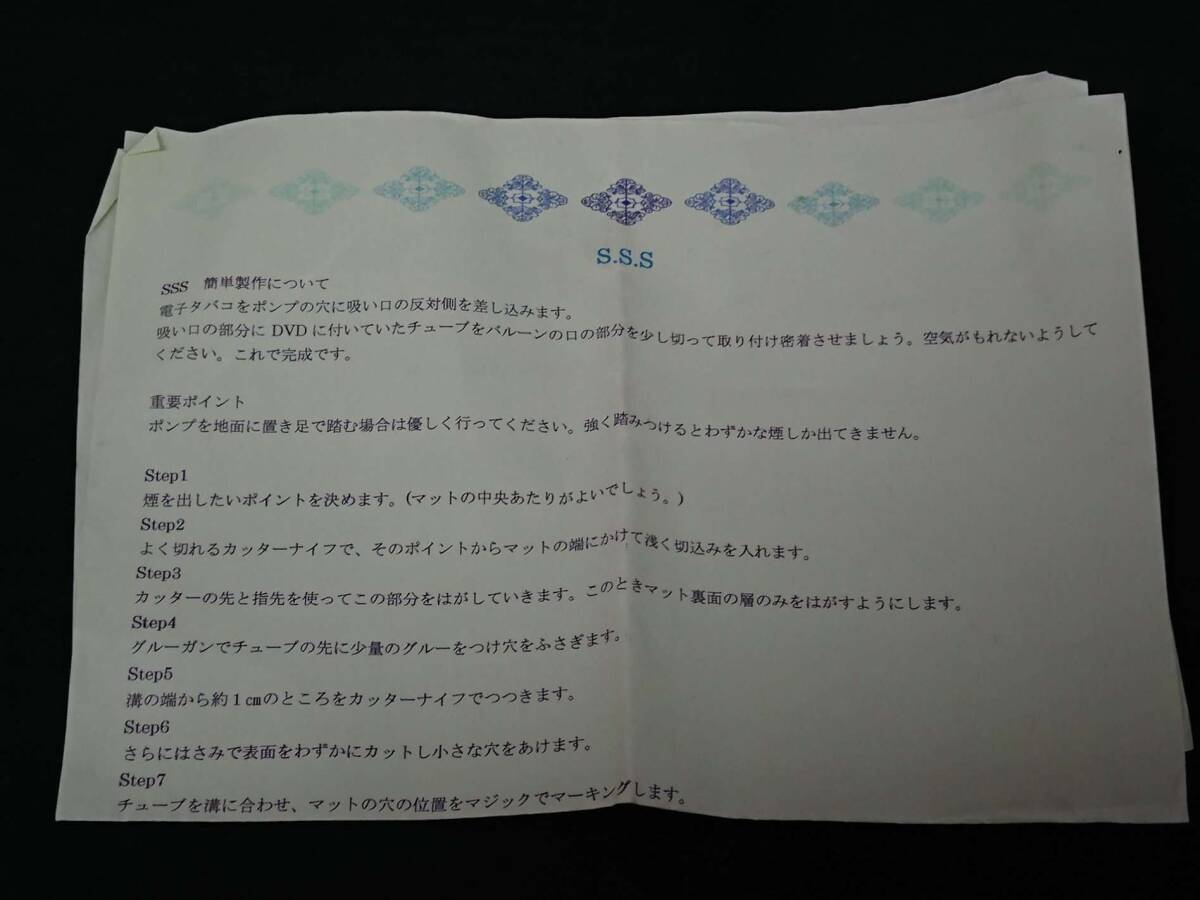 S.S.S
SSS 簡単製作について
電子タバコをポンプの穴に吸い口の反対側を差し込みます。
吸い口の部分に DVD に付いていたチューブをバルーンの口の部分を少し切って取り付け密着させましょう。空気がもれないようして
ください。これで完成です。
重要ポイント
ポンプを地面に置き足で踏む場合は優しく行ってください。強く踏みつけるとわずかな煙しか出てきません。
Step1
煙を出したいポイントを決めます。(マットの中央あたりがよいでしょう。)
Step2
よく切れるカッターナイフで、そのポイントからマットの端にかけて浅く切込みを入れます。
Step3
カッターの先と指先を使ってこの部分をはがしていきます。このときマット裏面の層のみをはがすようにします。
Step4
グルーガンでチューブの先に少量のグルーをつけ穴をふさぎます。
Step5
溝の端から約１㎝のところをカッターナイフでつつきます。
Step6
さらにはさみで表面をわずかにカットし小さな穴をあけます。
Step7
チューブを溝に合わせ、マットの穴の位置をマジックでマーキングします。